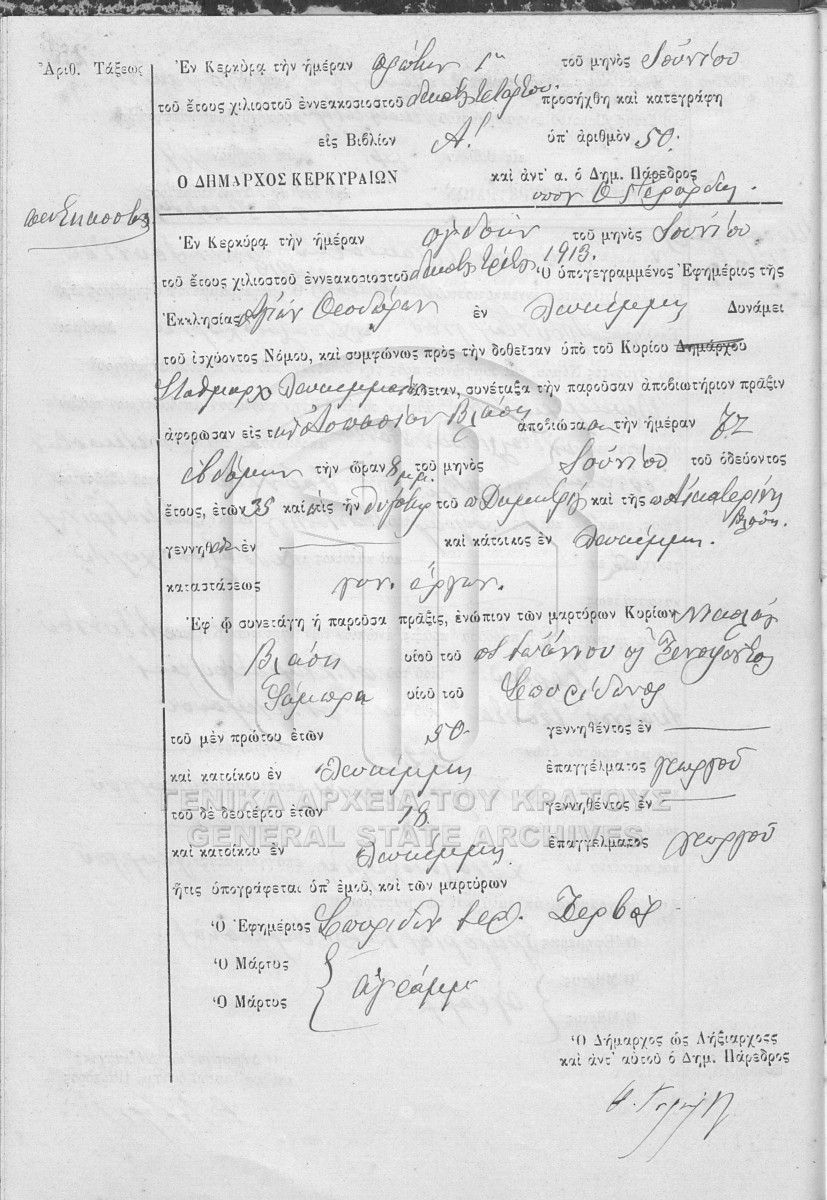 Ἀριθ. Τάξεως
Ἐν Κερκύρᾳ τὴν ἡμέραν πρώτην 1ην τοῦ μηνὸς Ἰουνίου
τοῦ ἔτους χιλιοστοῦ ἐννεακοσιοστοῦ δεκάτου τετάρτου προσήχθη καὶ κατεγράφη
εἰς Βιβλίον Α! ὑπ' ἀριθμὸν 50.
Ο ΔΗΜΑΡΧΟΣ ΚΕΡΚΥΡΑΙΩΝ καὶ ἀντ' α. ὁ Δημ. Πάρεδρος
Ἐν Κερκύρᾳ τὴν ἡμέραν ὀγδόην τοῦ μηνὸς Ἰουνίου
τοῦ ἔτους χιλιοστοῦ ἐννεακοσιοστοῦ 1913. Ὁ ὑπογεγραμμένος Ἐφημέριος τῆς
Ἐκκλησίας Ἁγίων Θεοδώρων ἐν Λευκίμμῃ Δυνάμει
τοῦ ἰσχύοντος Νόμου, καὶ συμφώνως πρὸς τὴν δοθεῖσαν ὑπὸ τοῦ Κυρίου Δημάρχου
Σταθμάρχου ἄδειαν, συνέταξα τὴν παροῦσαν ἀποβιωτήριον πρᾶξιν
ἀφορῶσαν εἰς Βλάση ἀποβιώσασα τὴν ἡμέραν
ἑβδόμην τὴν ὥραν 8 μ.μ. τοῦ μηνὸς Ἰουνίου τοῦ ὁδεύοντος
ἔτους, ἐτῶν 35 καὶ ἥτις ἦν θυγάτηρ τοῦ π Δημητρίου καὶ τῆς π Αἰκατερίνης
Βλάση.
γεννηθ ἐν — καὶ κάτοικος ἐν Λευκίμμῃ.
καταστάσεως
Ἐφ' ᾧ συνετάγη ἡ παροῦσα πρᾶξις, ἐνώπιον τῶν μαρτύρων Κυρίων Νικολάου
Βλάση υἱοῦ τοῦ π Ἰωάννου κ Ξενοφῶντος
υἱοῦ τοῦ Σπυρίδωνος
τοῦ μὲν πρώτου ἐτῶν 50. γεννηθέντος ἐν —
καὶ κατοίκου ἐν Λευκίμμῃ ἐπαγγέλματος γεωργοῦ
ΓΕΝΙΚΑ ΑΡΧΕΙΑ ΤΟΥ ΚΡΑΤΟΥΣ
τοῦ δὲ δευτέρου ἐτῶν 18. γεννηθέντος ἐν —
GENERAL STATE ARCHIVES
καὶ κατοίκου ἐν Λευκίμμῃ. ἐπαγγέλματος γεωργοῦ
ἥτις ὑπογράφεται ὑπ' ἐμοῦ, καὶ τῶν μαρτύρων
Ὁ Ἐφημέριος Σπυρίδων ἱερ.
Ὁ Μάρτυς
ἀγράμμ
Ὁ Μάρτυς
Ὁ Δήμαρχος ὡς Ληξίαρχος
καὶ ἀντ' αὐτοῦ ὁ Δημ. Πάρεδρος